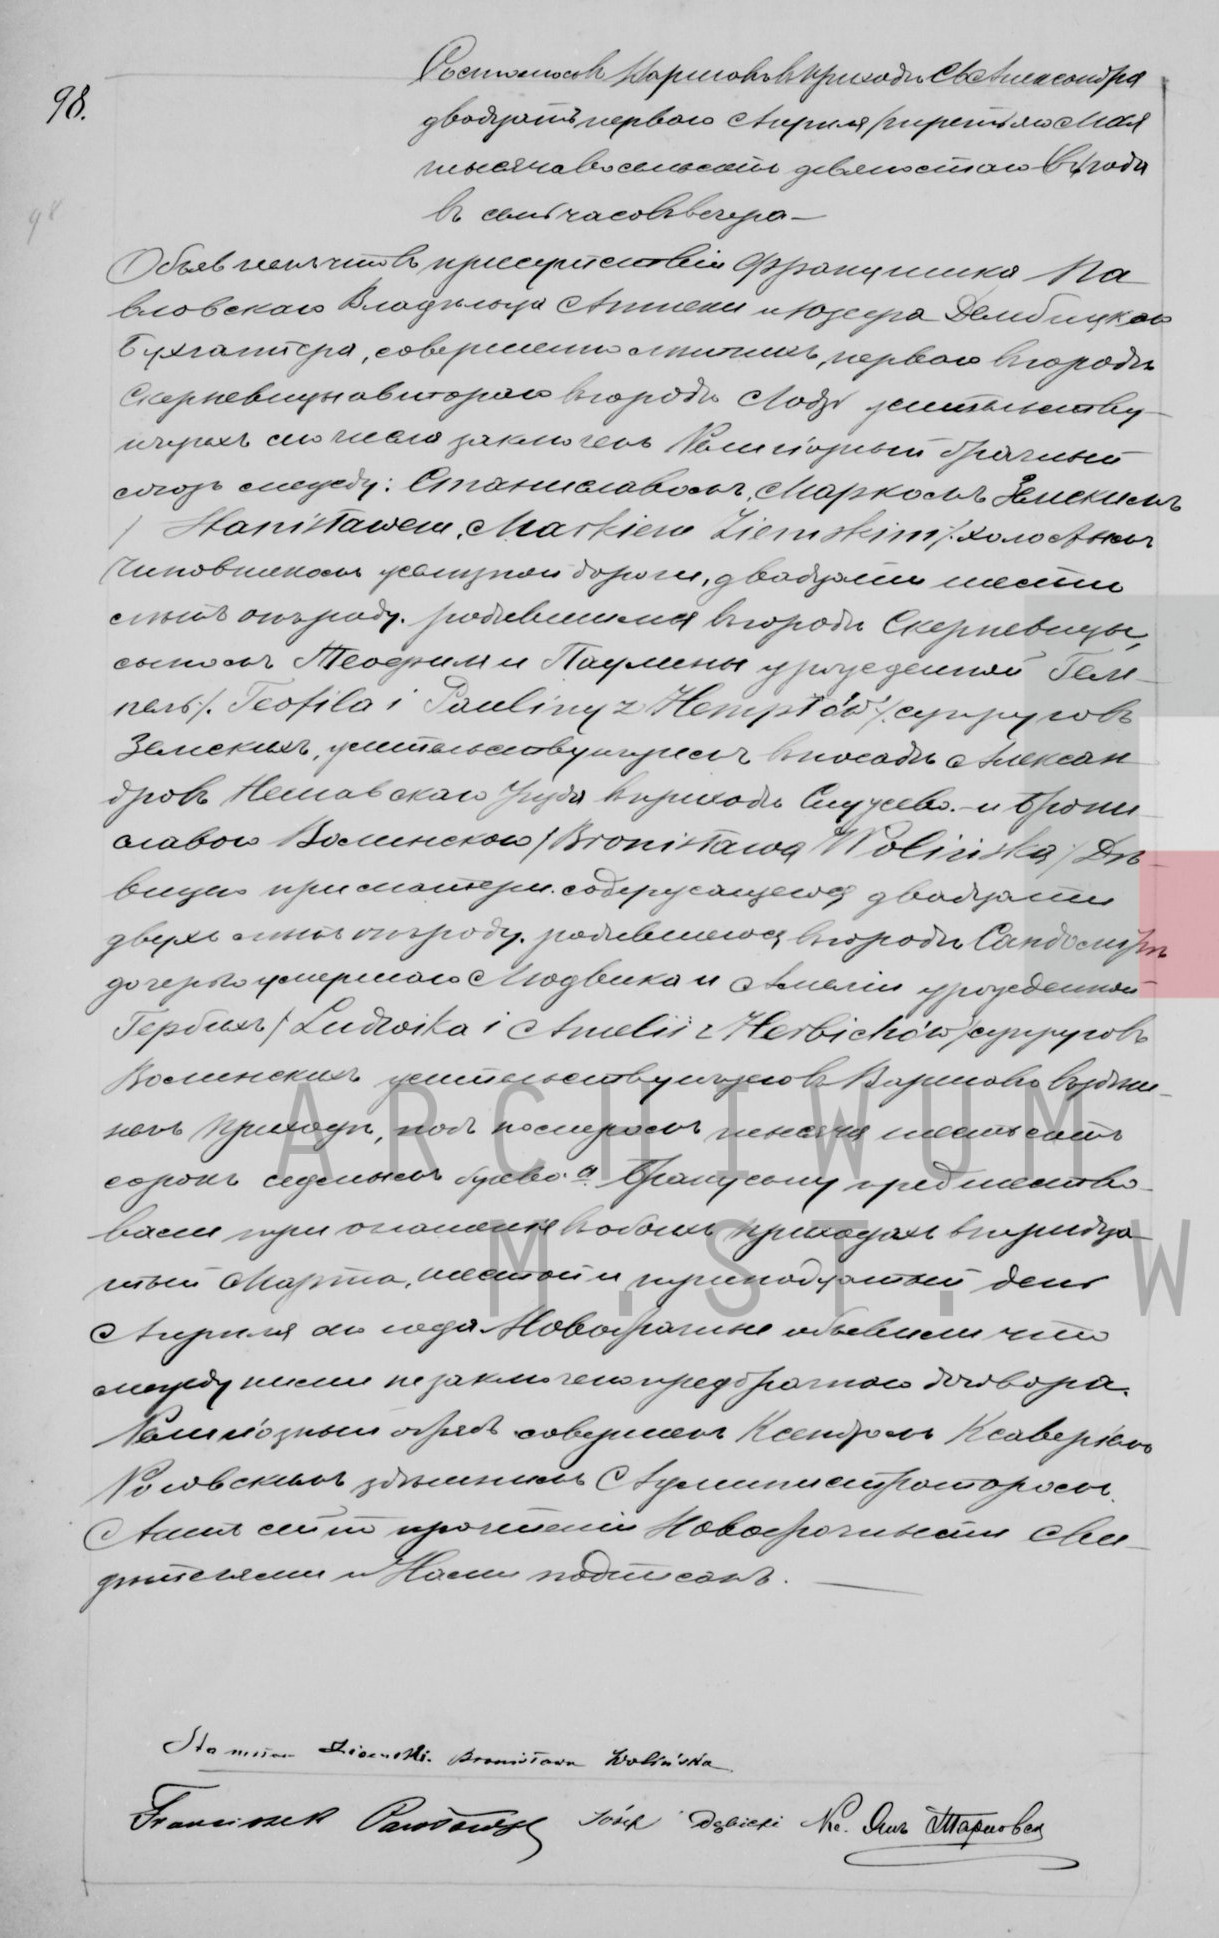 98.
98
Состоялось въ Варшавѣ въ приходѣ Св. Александра
двадцать перваго Апрѣля /третьяго Мая
тысяча восемьсотъ девяностаго года
въ семь часовъ вечера —
Объявляемъ что въ присутствіи Францишка Па
вловскаго Владѣльца Аптеки и Юзефа Дембицкаго
Бухгалтера, совершеннолѣтнихъ, перваго въ городѣ
Скерневицы а втораго въ городѣ Лодзь жительству
ющихъ сего числа заключенъ Религіозный брачный
союзъ между: Станиславомъ, Маркомъ Земскимъ
/ Stanisławem, Markiem Ziemskim /. холостымъ
Чиновникомъ желѣзной дороги, двадцати шести
лѣтъ отъ роду. родившимся въ городѣ Скерневицы,
сыномъ Теофиля и Паулины урожденной Гем-
пель /. Teofila i Pauliny z Hemplów /. супруговъ
Земскихъ, жительствующимъ въ посадѣ Алексан
дровъ Нешавскаго Уѣзда въ приходѣ Служево. — и Брони
славою Волинскою / Bronisławą Wolińską / Дѣ-
вицею при матери содержащеюся двадцати
двухъ лѣтъ отъ роду, родившеюся въ городѣ Сандомірѣ
дочерью умершаго Людвика и Амеліи урожденной
Гербихъ / Ludwika i Amelii z Herbichów / супруговъ
Волинскихъ жительствующею въ Варшавѣ въ здѣш-
немъ приходѣ, подъ номеромъ тысяча шестьсотъ
сорокъ седьмымъ буква а. Браку сему предшество-
вали три оглашенія въ обоихъ приходахъ въ тридца
тый Марта, шестой и тринадцатый день
Апрѣля сего года Новобрачные объявили что
между ними не заключено предбрачнаго договора.
Религіозный обрядъ совершенъ Ксендзомъ Ксаверіемъ
Роговскимъ здѣшнимъ Администраторомъ.
Актъ сей по прочтеніи Новобрачными Сви-
дѣтелями и Нами подписанъ. —
ARCHIWUM
M. ST. W
Stanisław Ziemski. Bronisława Wolińska
Franciszek Pawłowski Józef Dębicki Кс. Янъ Тарновск